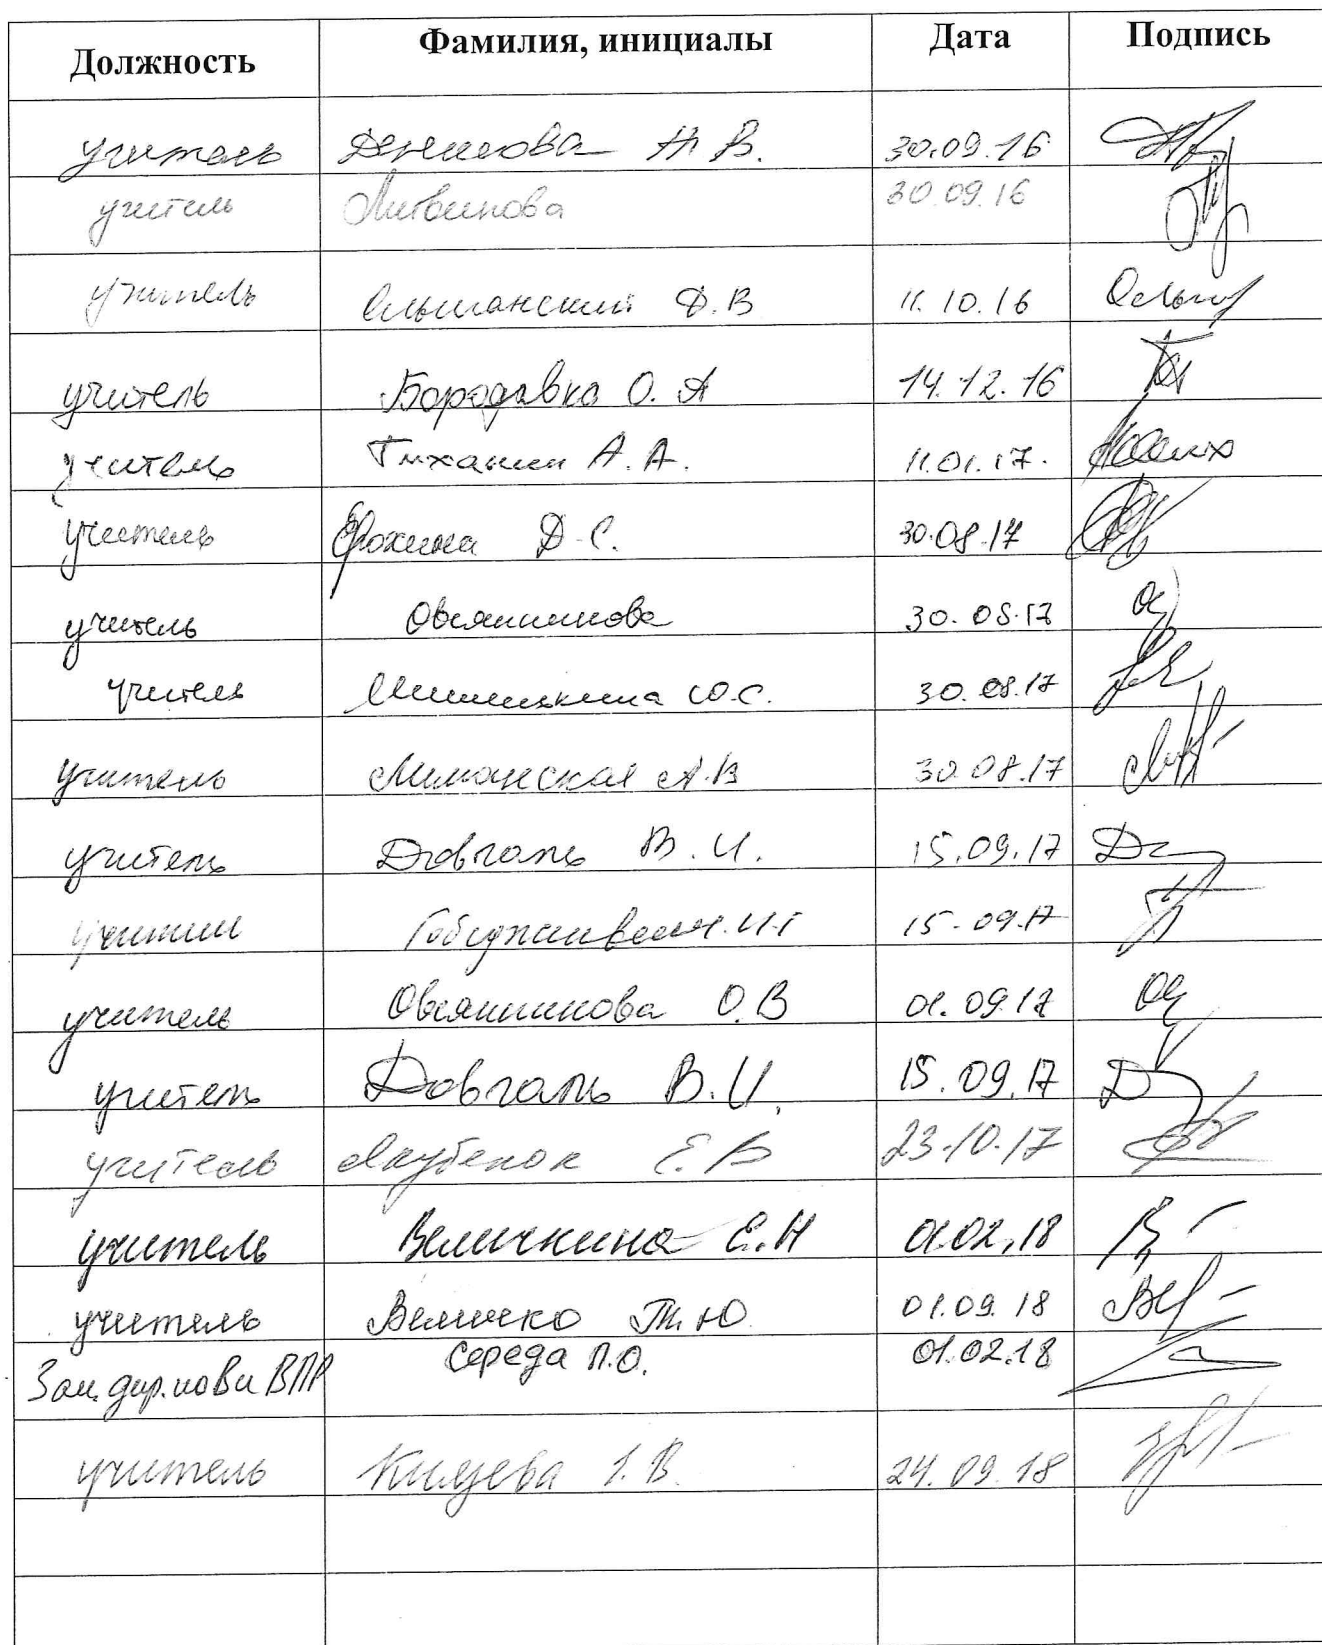 Должность Фамилия, инициалы Дата Подпись
учитель Денисова Н. В. 30.09.16
учитель Литвинова 30.09.16
учитель Ольшанский Д.В 11.10.16
учитель Бородавка О. А 14.12.16
учитель Тиханин А.А. 11.01.17.
учитель Ерохина Д.С. 30.08.17
учитель Овсянникова 30.08.17
учитель Ю.С. 30.08.17
учитель Лиманская А.В 30.08.17
учитель Довгаль В.И. 15.09.17
учитель 15.09.17
учитель Овсянникова О.В 01.09.17
учитель Довгаль В.И. 15.09.17
учитель Е.В 23.10.17
учитель Величкина Е.Н 01.02.18
учитель Величко Т.Ю. 01.09.18
Зам. дир. ВПР Середа П.О. 01.02.18
учитель 24.09.18